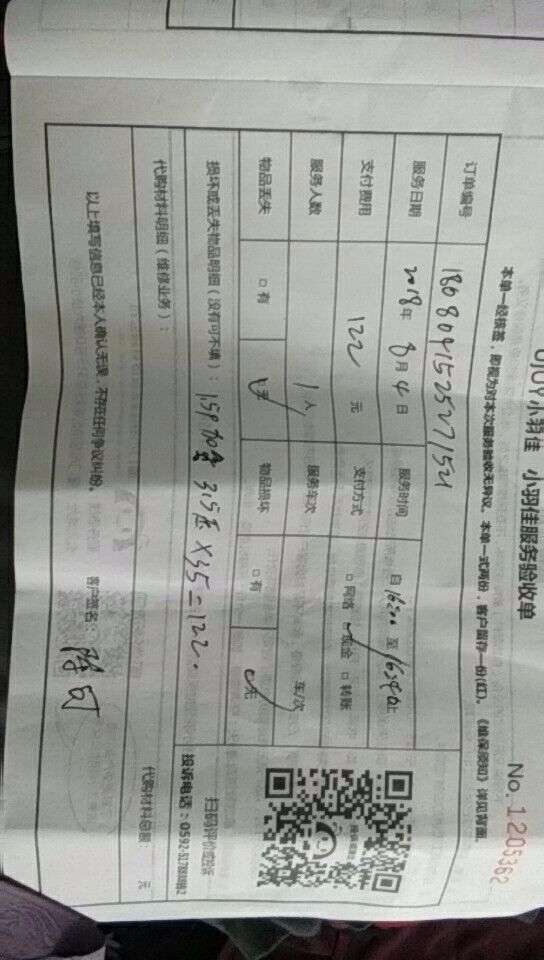 小羽佳 小羽佳服务验收单
No. 1205362
本单一经核签，即视为对本次服务验收无异议。本单一式两份，客户留存一份(红)。《维保须知》详见背面
订单编号
服务日期 2018年 8月 4日 服务时间 自 至 止
支付费用 122 元 支付方式 □网络 现金 □转账
服务人数 1人 服务车次 车/次
物品丢失 □有 无 物品损坏 □有 无
损坏或丢失物品明细（没有可不填）： 315 X35=122
扫码评价或投诉
投诉电话：0592-
代购材料明细（维修业务）： 代购材料总额 元
以上填写信息已经本人确认无误，不存在任何争议纠纷。 客户签名：